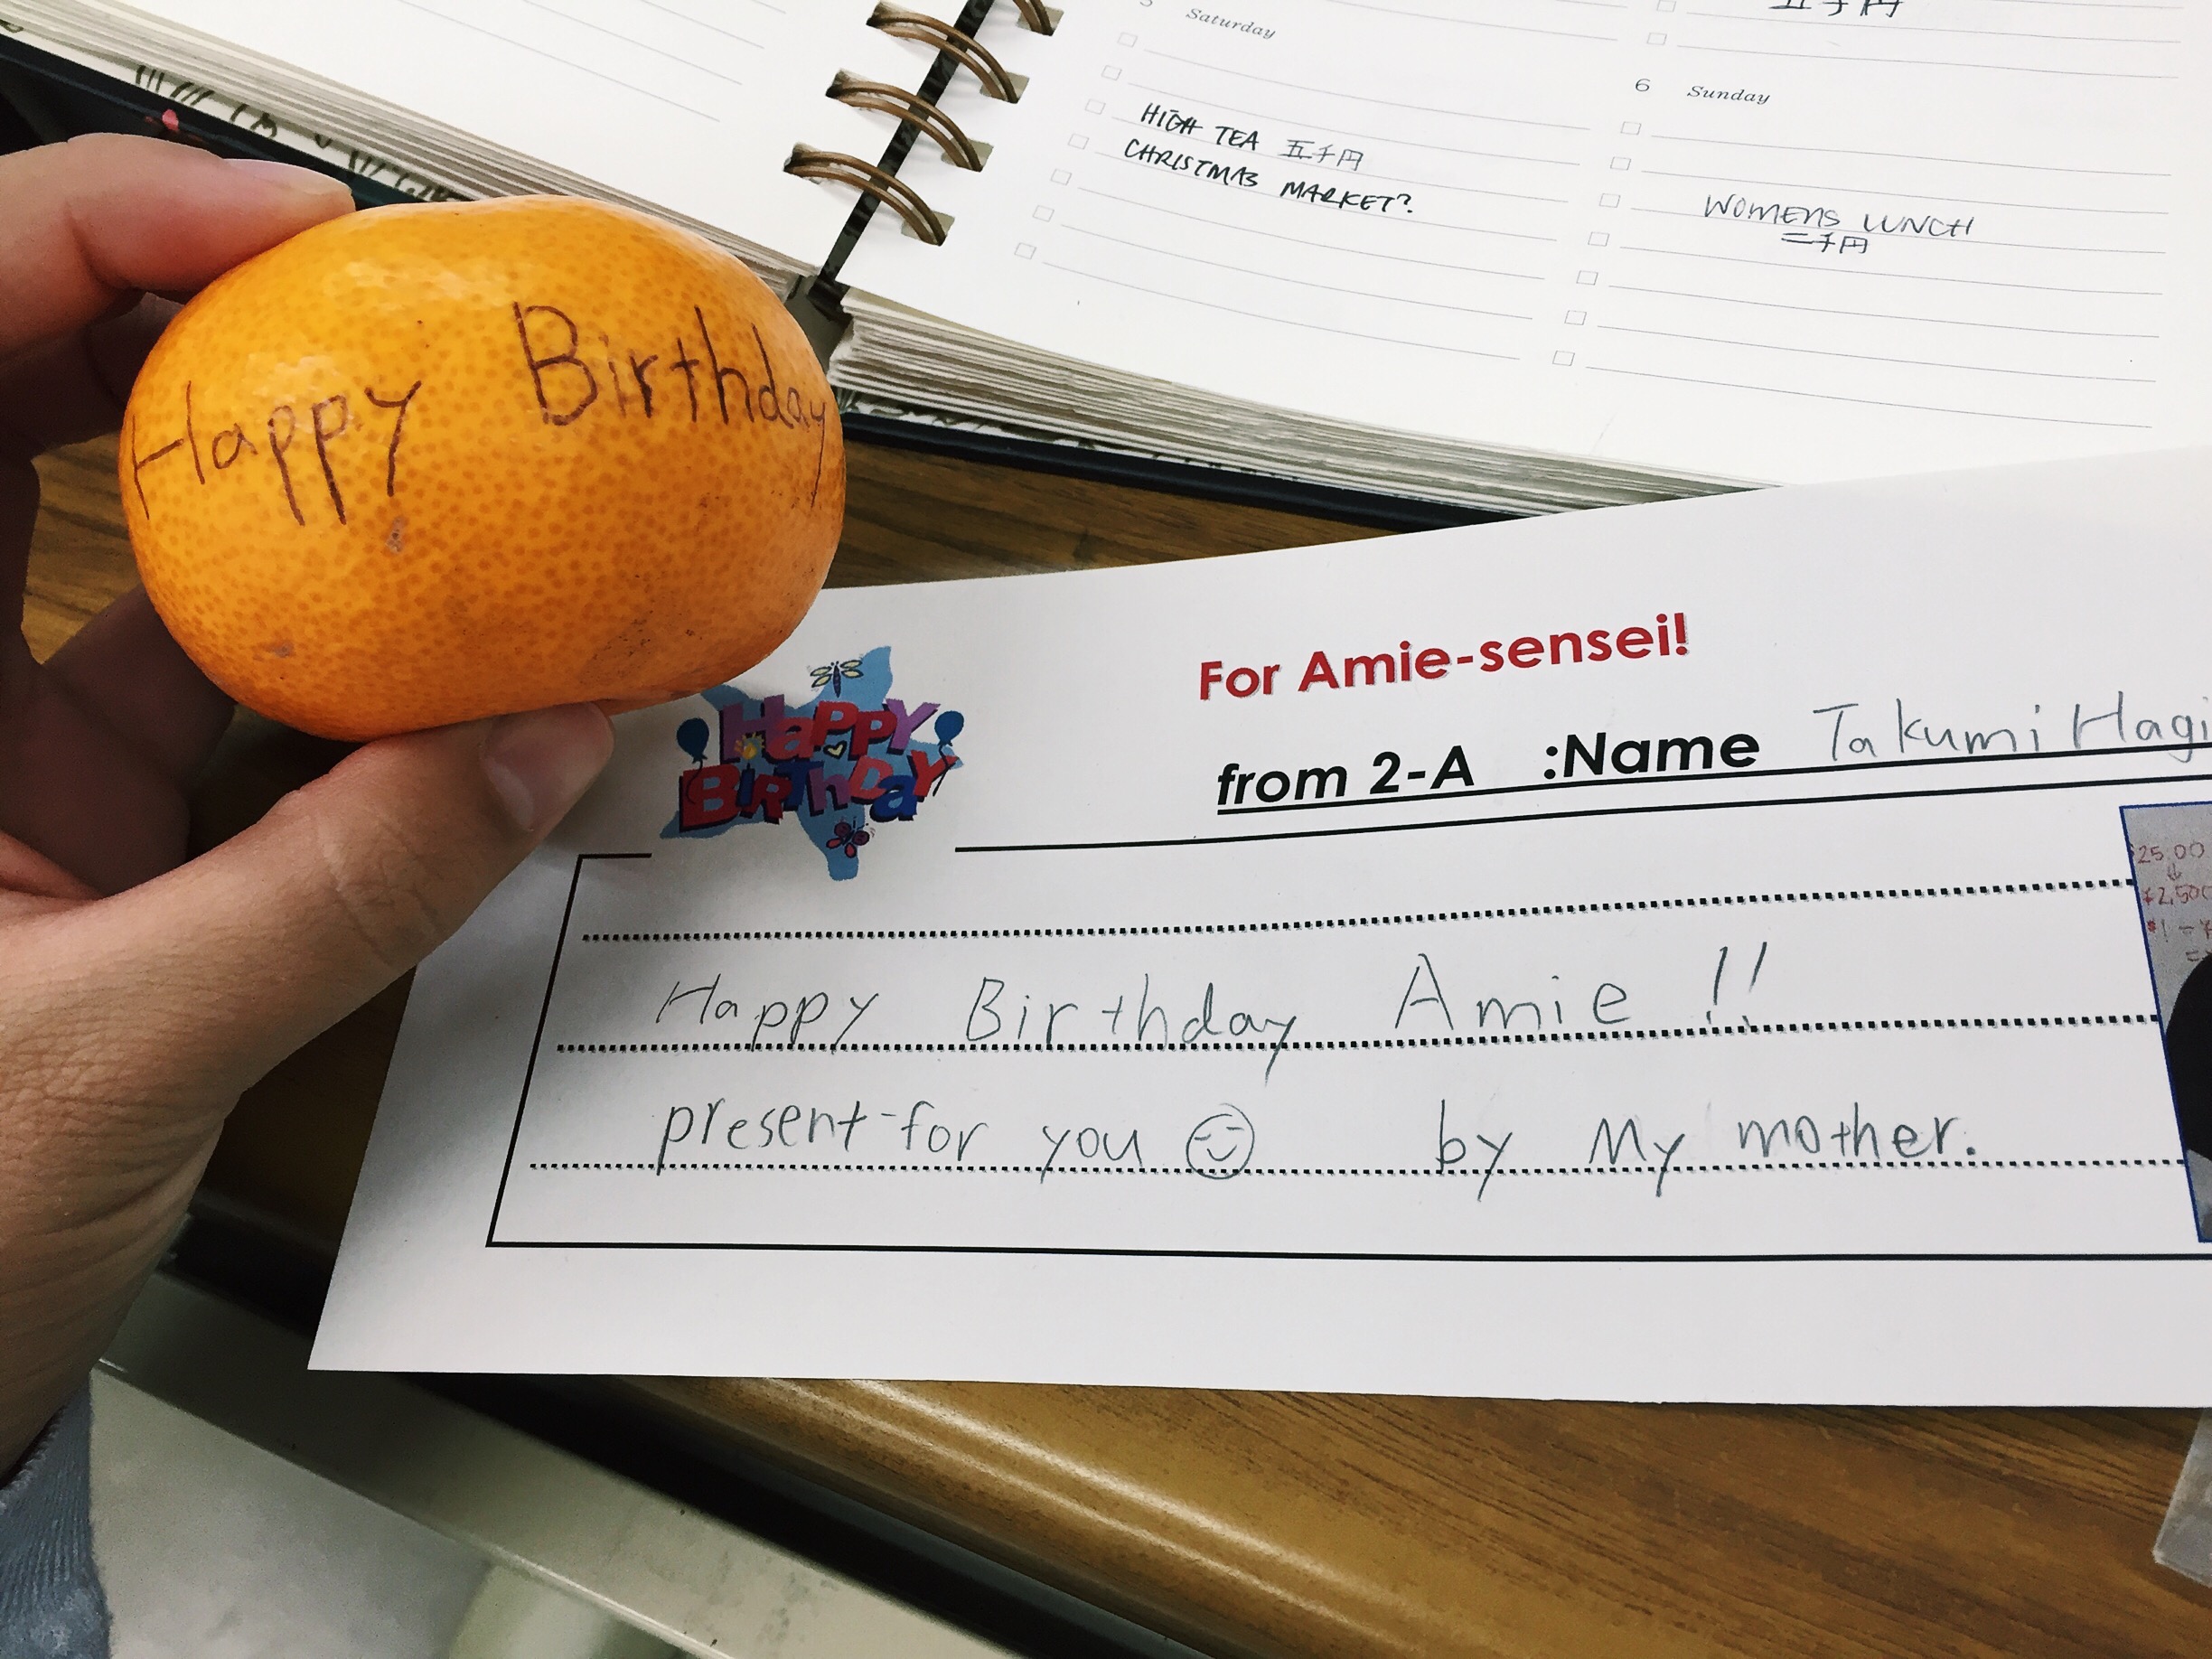 五千円
5 Saturday
HIGH TEA 五千円
CHRISTMAS MARKET?
6 Sunday
WOMENS LUNCH
二千円
Happy Birthday
HAPPY
BIRTHDAY
For Amie-sensei!
from 2-A :Name Takumi Hagi
Happy Birthday Amie !!
present for you by My mother.
25.00
¥2,500
$1